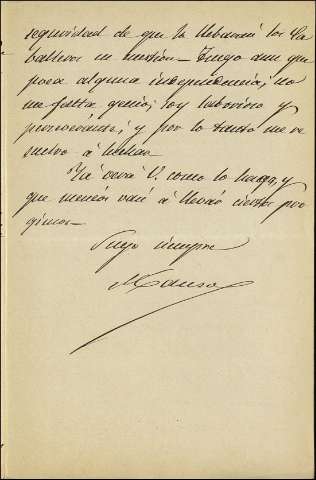 seguridad de que la llevarán los Ca
balleros en cuestión — Tengo aun que
poca alguna independencia; no
me falta genio; soy laborioso y
perseverante; y por lo tanto me re
suelvo á luchar
Ya verá V. como lo hago, y
que menéos van á llevar ciertos pró
gimos —
Suyo siempre